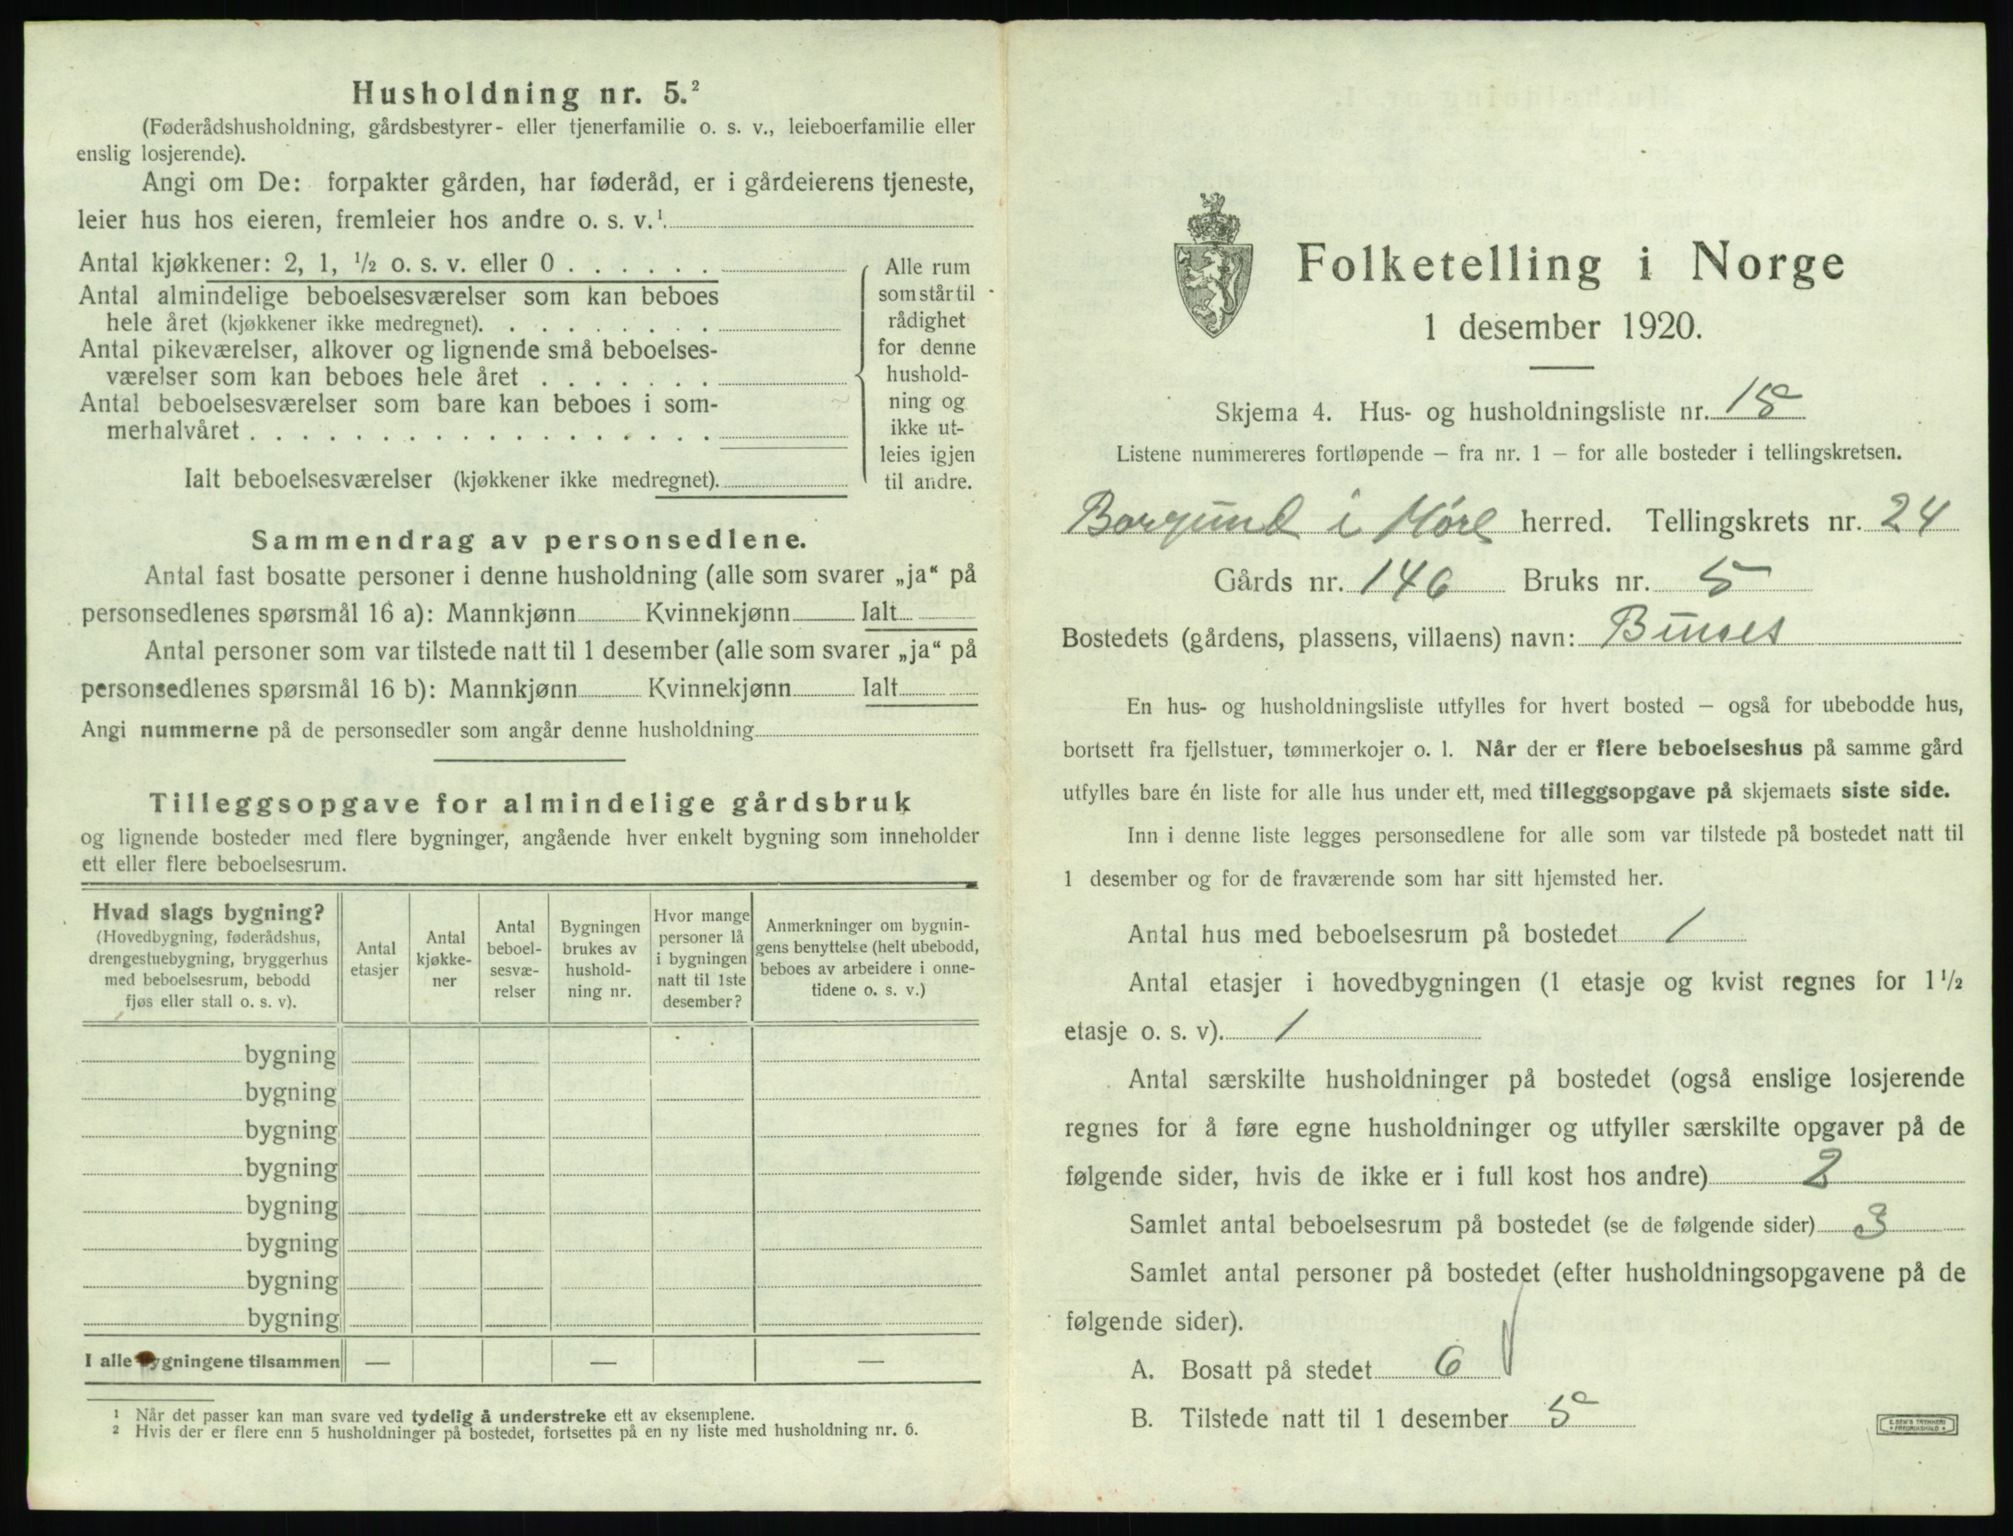 Husholdning nr. 5.²
(Føderådshusholdning, gårdsbestyrer- eller tjenerfamilie o. s. v., leieboerfamilie eller
enslig losjerende).
Angi om De: forpakter gården, har føderåd, er i gårdeierens tjeneste,
leier hus hos eieren, fremleier hos andre o. s. v.¹.
Antal kjøkkener: 2, 1, ½ o. s. v. eller 0 . . . . . .
Antal almindelige beboelsesværelser som kan beboes
hele året (kjøkkener ikke medregnet). . . . . . . . .
Antal pikeværelser, alkover og lignende små beboelses-
værelser som kan beboes hele året . . . . . . .
Antal beboelsesværelser som bare kan beboes i som-
merhalvåret . . . . . . . . . . . . . . . . . .
Ialt beboelsesværelser (kjøkkener ikke medregnet).
Alle rum
som står til
rådighet
for denne
hushold-
ning og
ikke ut-
leies igjen
til andre.
Sammendrag av personsedlene.
Antal fast bosatte personer i denne husholdning (alle som svarer „ja“ på
personsedlenes spørsmål 16 a): Mannkjønn Kvinnekjønn Ialt
Antal personer som var tilstede natt til 1 desember (alle som svarer „ja“ på
personsedlenes spørsmål 16 b): Mannkjønn Kvinnekjønn Ialt
Angi nummerne på de personsedler som angår denne husholdning
Tilleggsopgave for almindelige gårdsbruk
og lignende bosteder med flere bygninger, angående hver enkelt bygning som inneholder
ett eller flere beboelsesrum.
Hvad slags bygning?
(Hovedbygning, føderådshus,
drengestuebygning, bryggerhus
med beboelsesrum, bebodd
fjøs eller stall o. s. v).
Antal
etasjer
Antal
kjøkke-
ner
Antal
beboel-
sesvæ-
relser
Bygningen
brukes av
hushold-
ning nr.
Hvor mange
personer lå
i bygningen
natt til 1ste
desember?
Anmerkninger om bygnin-
gens benyttelse (helt ubebodd,
beboes av arbeidere i onne-
tidene o. s. v.)
bygning
bygning
bygning
bygning
bygning
bygning
bygning
bygning
I alle bygningene tilsammen — — —
¹ Når det passer kan man svare ved tydelig å understreke ett av eksemplene.
² Hvis der er flere enn 5 husholdninger på bostedet, fortsettes på en ny liste med husholdning nr. 6.
Folketelling i Norge
1 desember 1920.
Skjema 4. Hus- og husholdningsliste nr. 15
Listene nummereres fortløpende – fra nr. 1 – for alle bosteder i tellingskretsen.
Borgund i Møre herred. Tellingskrets nr. 24
Gårds nr. 146 Bruks nr. 5
Bostedets (gårdens, plassens, villaens) navn: Bunes
En hus- og husholdningsliste utfylles for hvert bosted – også for ubebodde hus,
bortsett fra fjellstuer, tømmerkojer o. l. Når der er flere beboelseshus på samme gård
utfylles bare én liste for alle hus under ett, med tilleggsopgave på skjemaets siste side.
Inn i denne liste legges personsedlene for alle som var tilstede på bostedet natt til
1 desember og for de fraværende som har sitt hjemsted her.
Antal hus med beboelsesrum på bostedet 1
Antal etasjer i hovedbygningen (1 etasje og kvist regnes for 1½
etasje o. s. v). 1
Antal særskilte husholdninger på bostedet (også enslige losjerende
regnes for å føre egne husholdninger og utfyller særskilte opgaver på de
følgende sider, hvis de ikke er i full kost hos andre) 2
Samlet antal beboelsesrum på bostedet (se de følgende sider) 3
Samlet antal personer på bostedet (efter husholdningsopgavene på de
følgende sider).
A. Bosatt på stedet 6
B. Tilstede natt til 1 desember 5